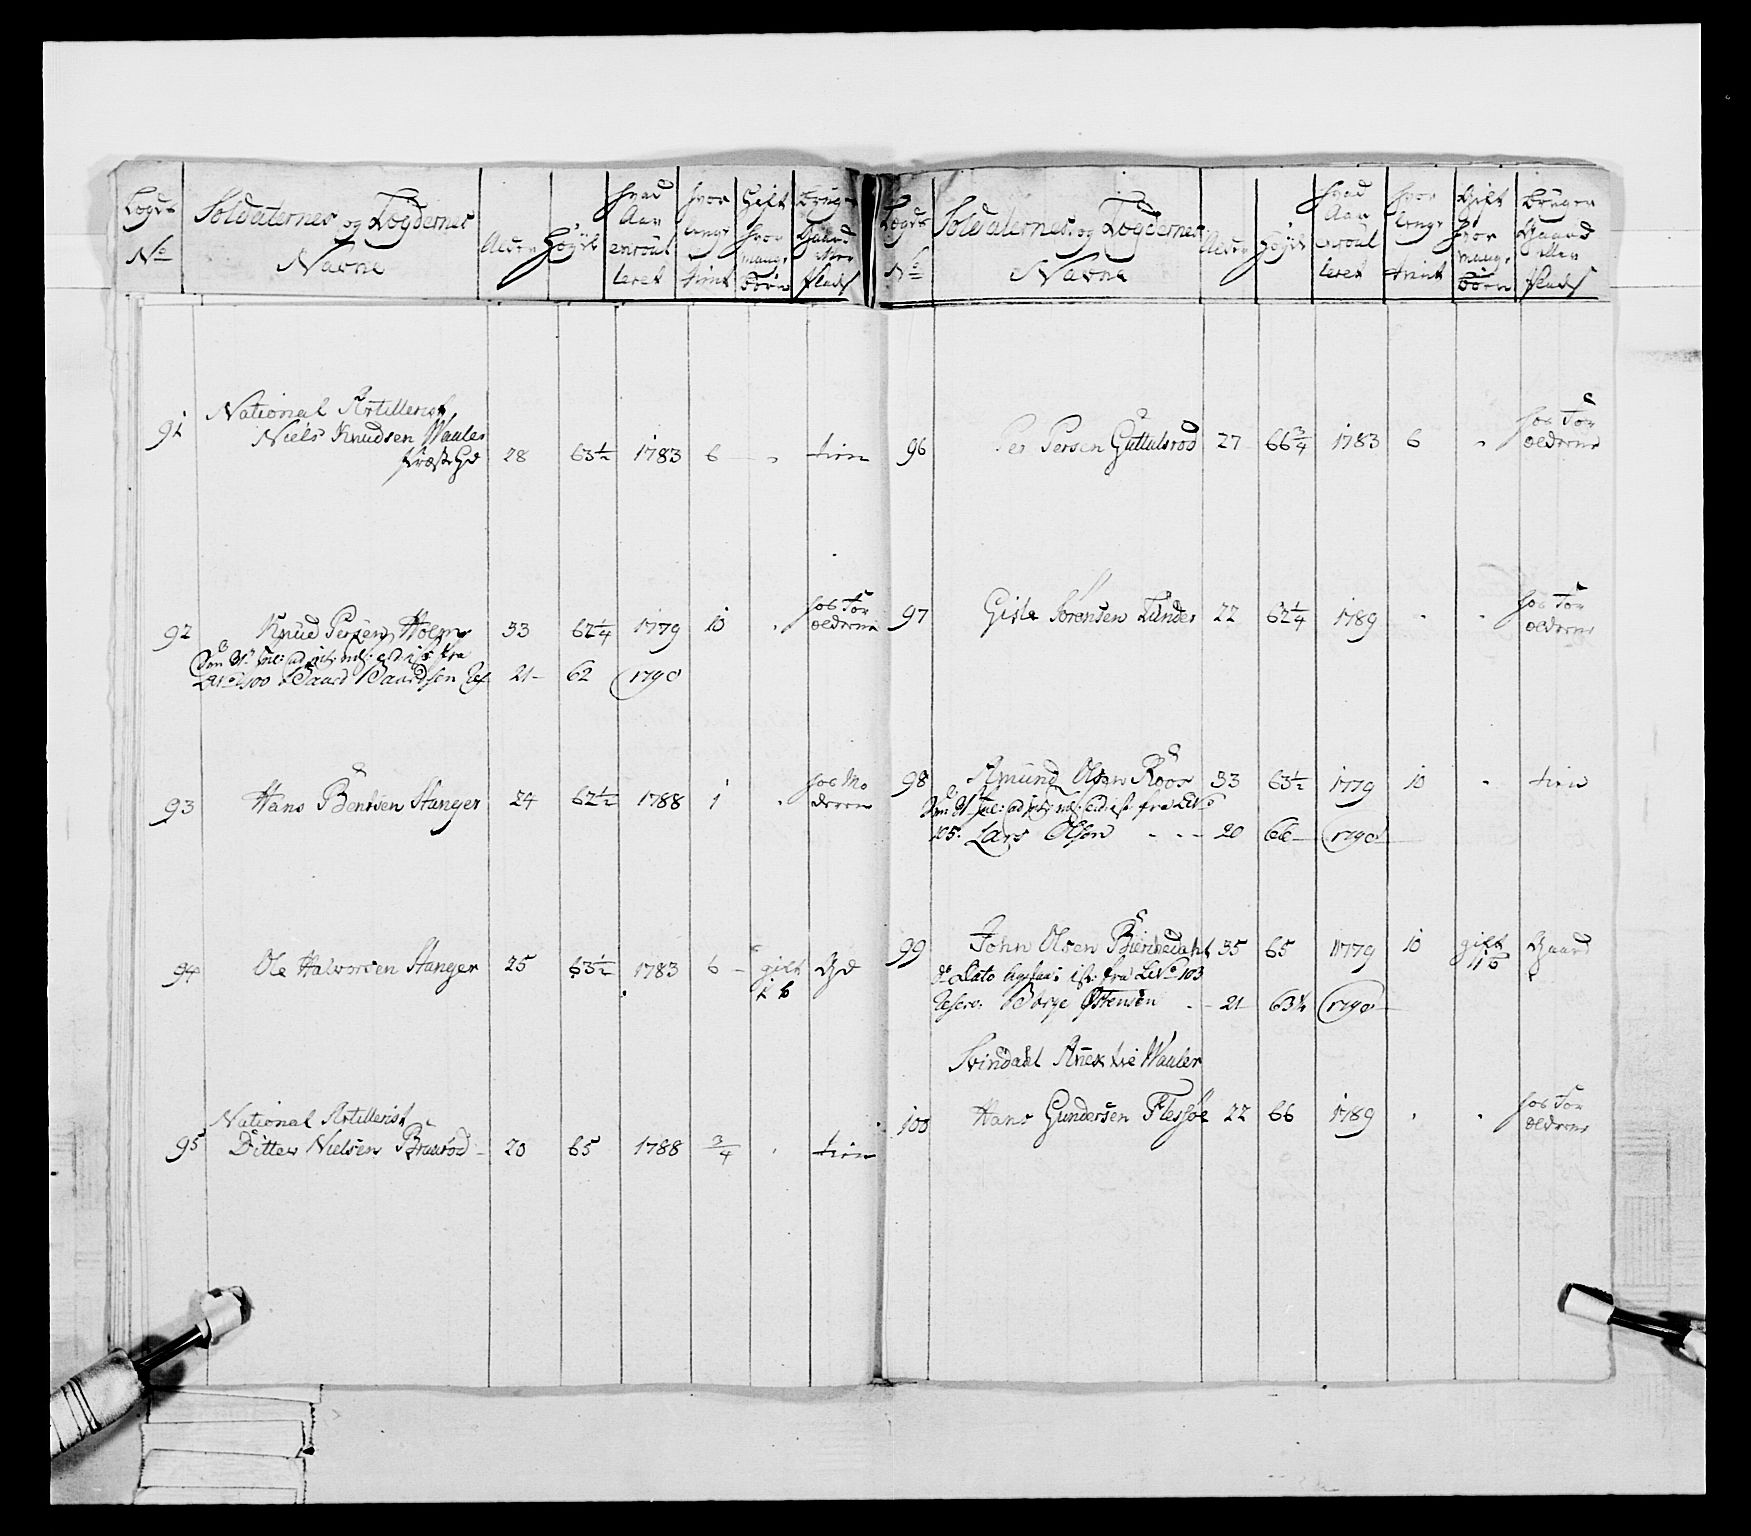 Lægds No
Soldaternes og Lægdernes Navne
Alder
Høyde
hvad Aar enroulleret
hvor længe tient
Gift hvor mange Børn
Bruger Gaard eller Plads
91
National Artillerist
Niels Knudsen Waaler
PræsteGd 28 63½ 1783 6 " tien
92 Knud Persen Holm 33 62¼ 1779 10 " hos Forældrene
Baard Baardsen 21 62 1790
93 Hans Bentsen Stanger 24 62½ 1788 1 " hos Moderen
94 Ole Halvorsen Stanger 25 63½ 1783 6 gift Gd
National Artillerist
95 Ditlev Nielsen 20 65 1788 ¾ " tien
Lægds No
Soldaternes og Lægdernes Navne
Alder
Høyde
hvad Aar enroulleret
hvor længe tient
Gift hvor mange Børn
Bruger Gaard eller Plads
96 Per Persen Guttulsrød 27 66¾ 1783 6 " hos Forældrene
97 Gisle Sørensen Tunder 22 62¼ 1789 " " hos Forældrene
98 Amund Olsen Roos 33 63½ 1779 10 " tien
105. Lars Olsen 20 66 1790
99 John Olsen Bierchedahl 35 65 1779 10 gift Gaard
Dato fra No 103
Børge Østensen 21 63¼ 1790
Svindahl Anex til Waaler
100 Hans Gundersen Flessøe 22 66 1789 " " hos Forældrene